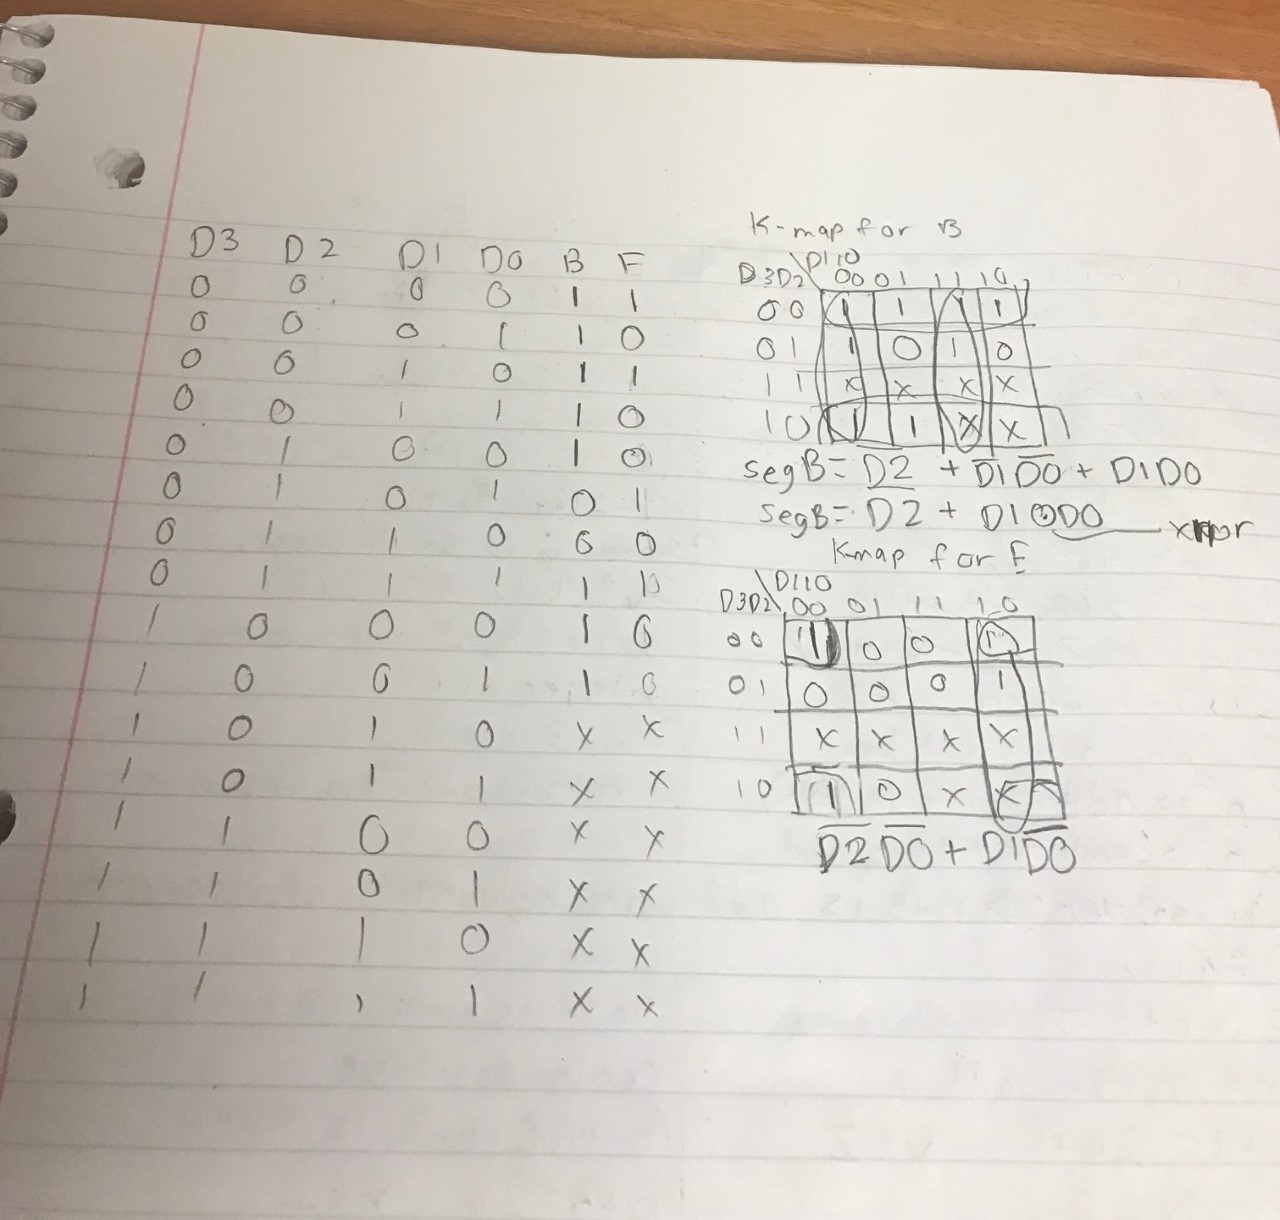 D3 D2 D1 D0 B F
0 0 0 0 1 1
0 0 0 1 1 0
0 0 1 0 1 1
0 0 1 1 1 0
0 1 0 0 1 0
0 1 0 1 0 1
0 1 1 0 0 0
0 1 1 1 1
1 0 0 0 1 0
1 0 0 1 1 0
1 0 1 0 x x
1 0 1 1 x x
1 1 0 0 x x
1 1 0 1 x x
1 1 1 0 x x
1 1 1 1 x x
K-map for B
D3D2\D110
00 01 11 10
00 1 1 1 1
01 1 0 1 0
11 x x x x
10 1 1 x x
segB= D̅2̅ + D̅1̅D̅0̅ + D1D0
segB= D̅2̅ + D1⊙D0
Kmap for E
D3D2\D110
00 01 11 10
00 1 0 0 1
01 0 0 0 1
11 x x x x
10 1 0 x x
D̅2̅ D̅0̅ + D1D̅0̅